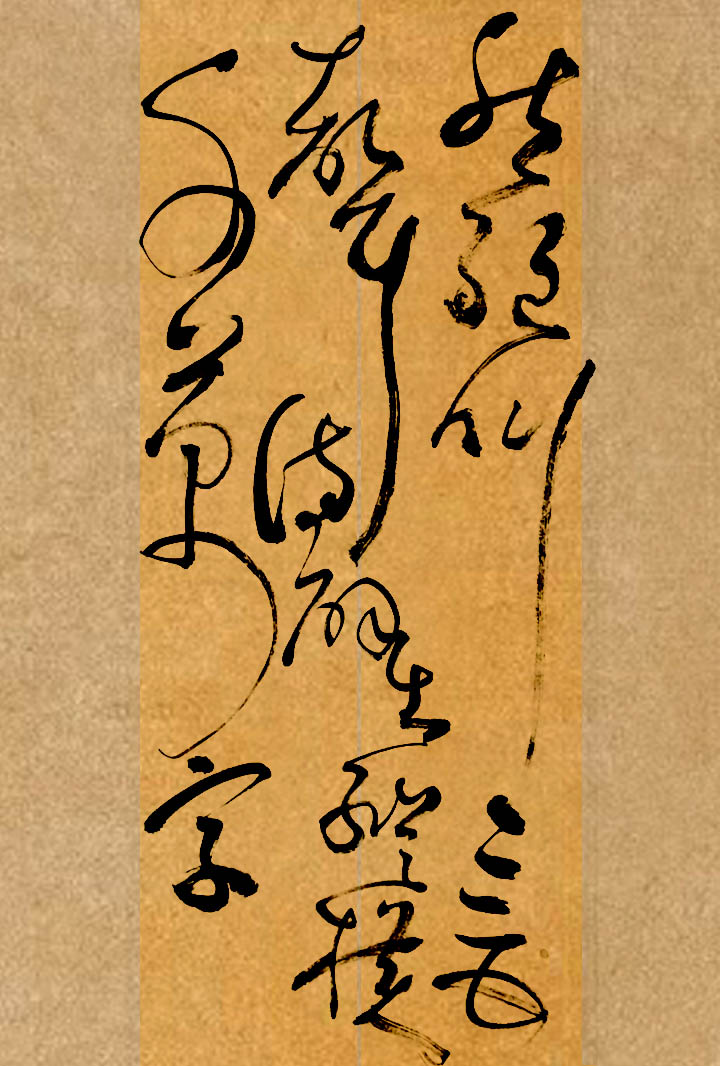 然絕叫三五
聲滿壁縱橫
千萬字